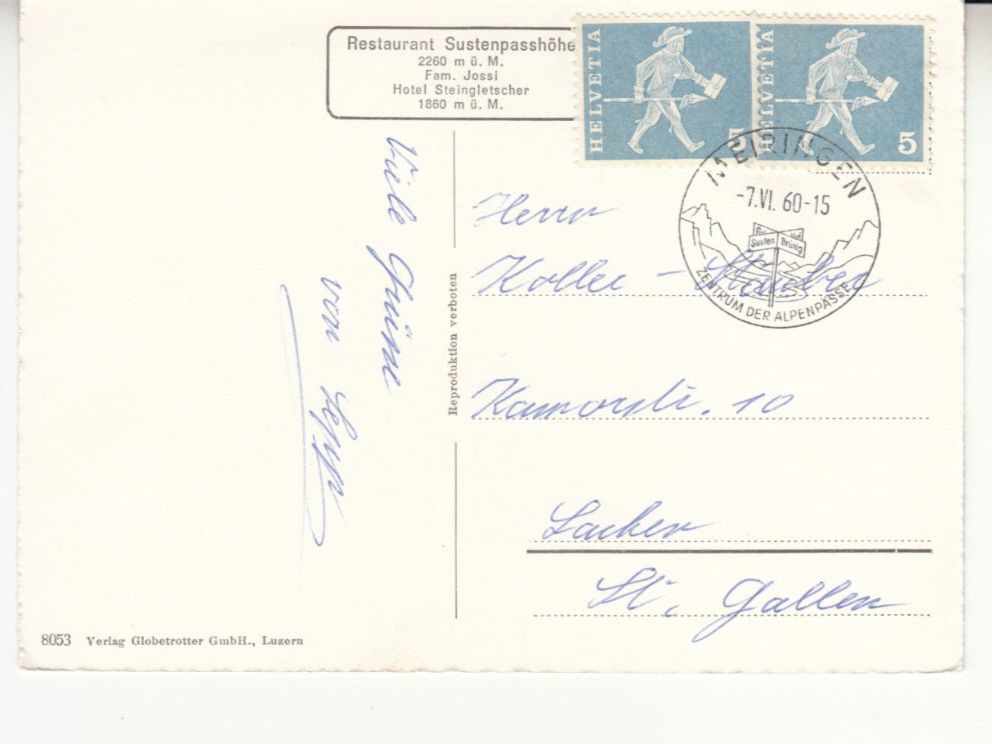 Restaurant Sustenpasshöhe
2260 m ü. M.
Fam. Jossi
Hotel Steingletscher
1860 m ü. M.
HELVETIA
5
HELVETIA
5
MEIRINGEN
-7.VI. 60-15
Susten Brünig
ZENTRUM DER ALPENPÄSSE
Viele Grüsse
von Sepp
Reproduktion verboten
Herrn
Koller - Stauber
Kamorstr. 10
Lachen
St. Gallen
8053 Verlag Globetrotter GmbH., Luzern